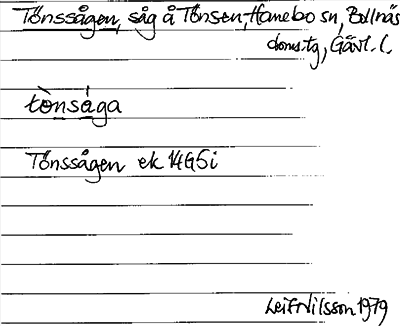 Tönssågen, såg å Tönsen, Hanebo sn, Bollnäs
doms.tg, Gävl. l.
tö̀nsǻga
Tönssågen ek 14G5i
Leif Nilsson 1979